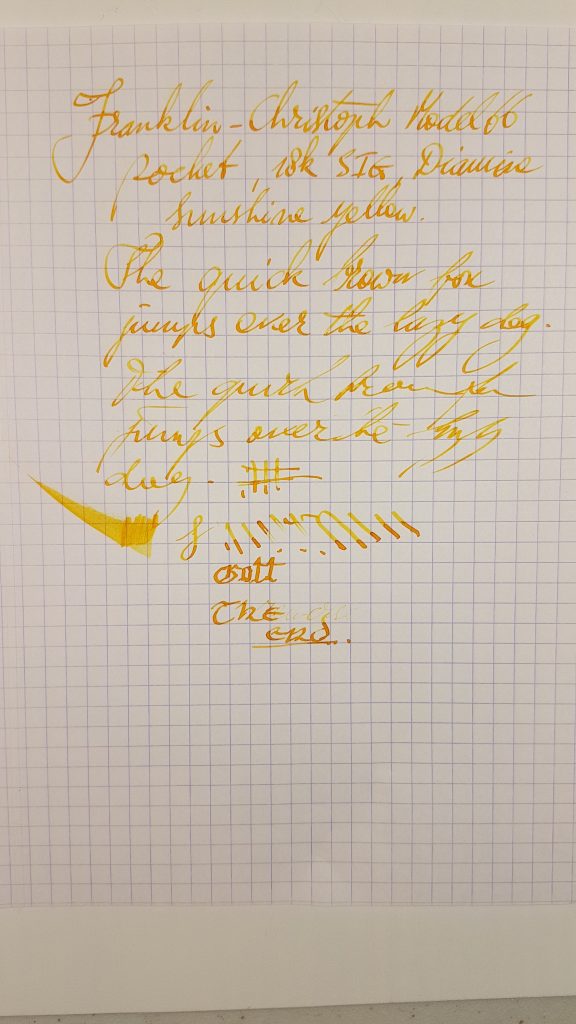 Franklin-Christoph Model 66
pocket, 18k SIG, Diamine
sunshine yellow.
The quick brown fox
jumps over the lazy dog.
The quick brown fox
jumps over the lazy
dog.
Gott
THE
END.